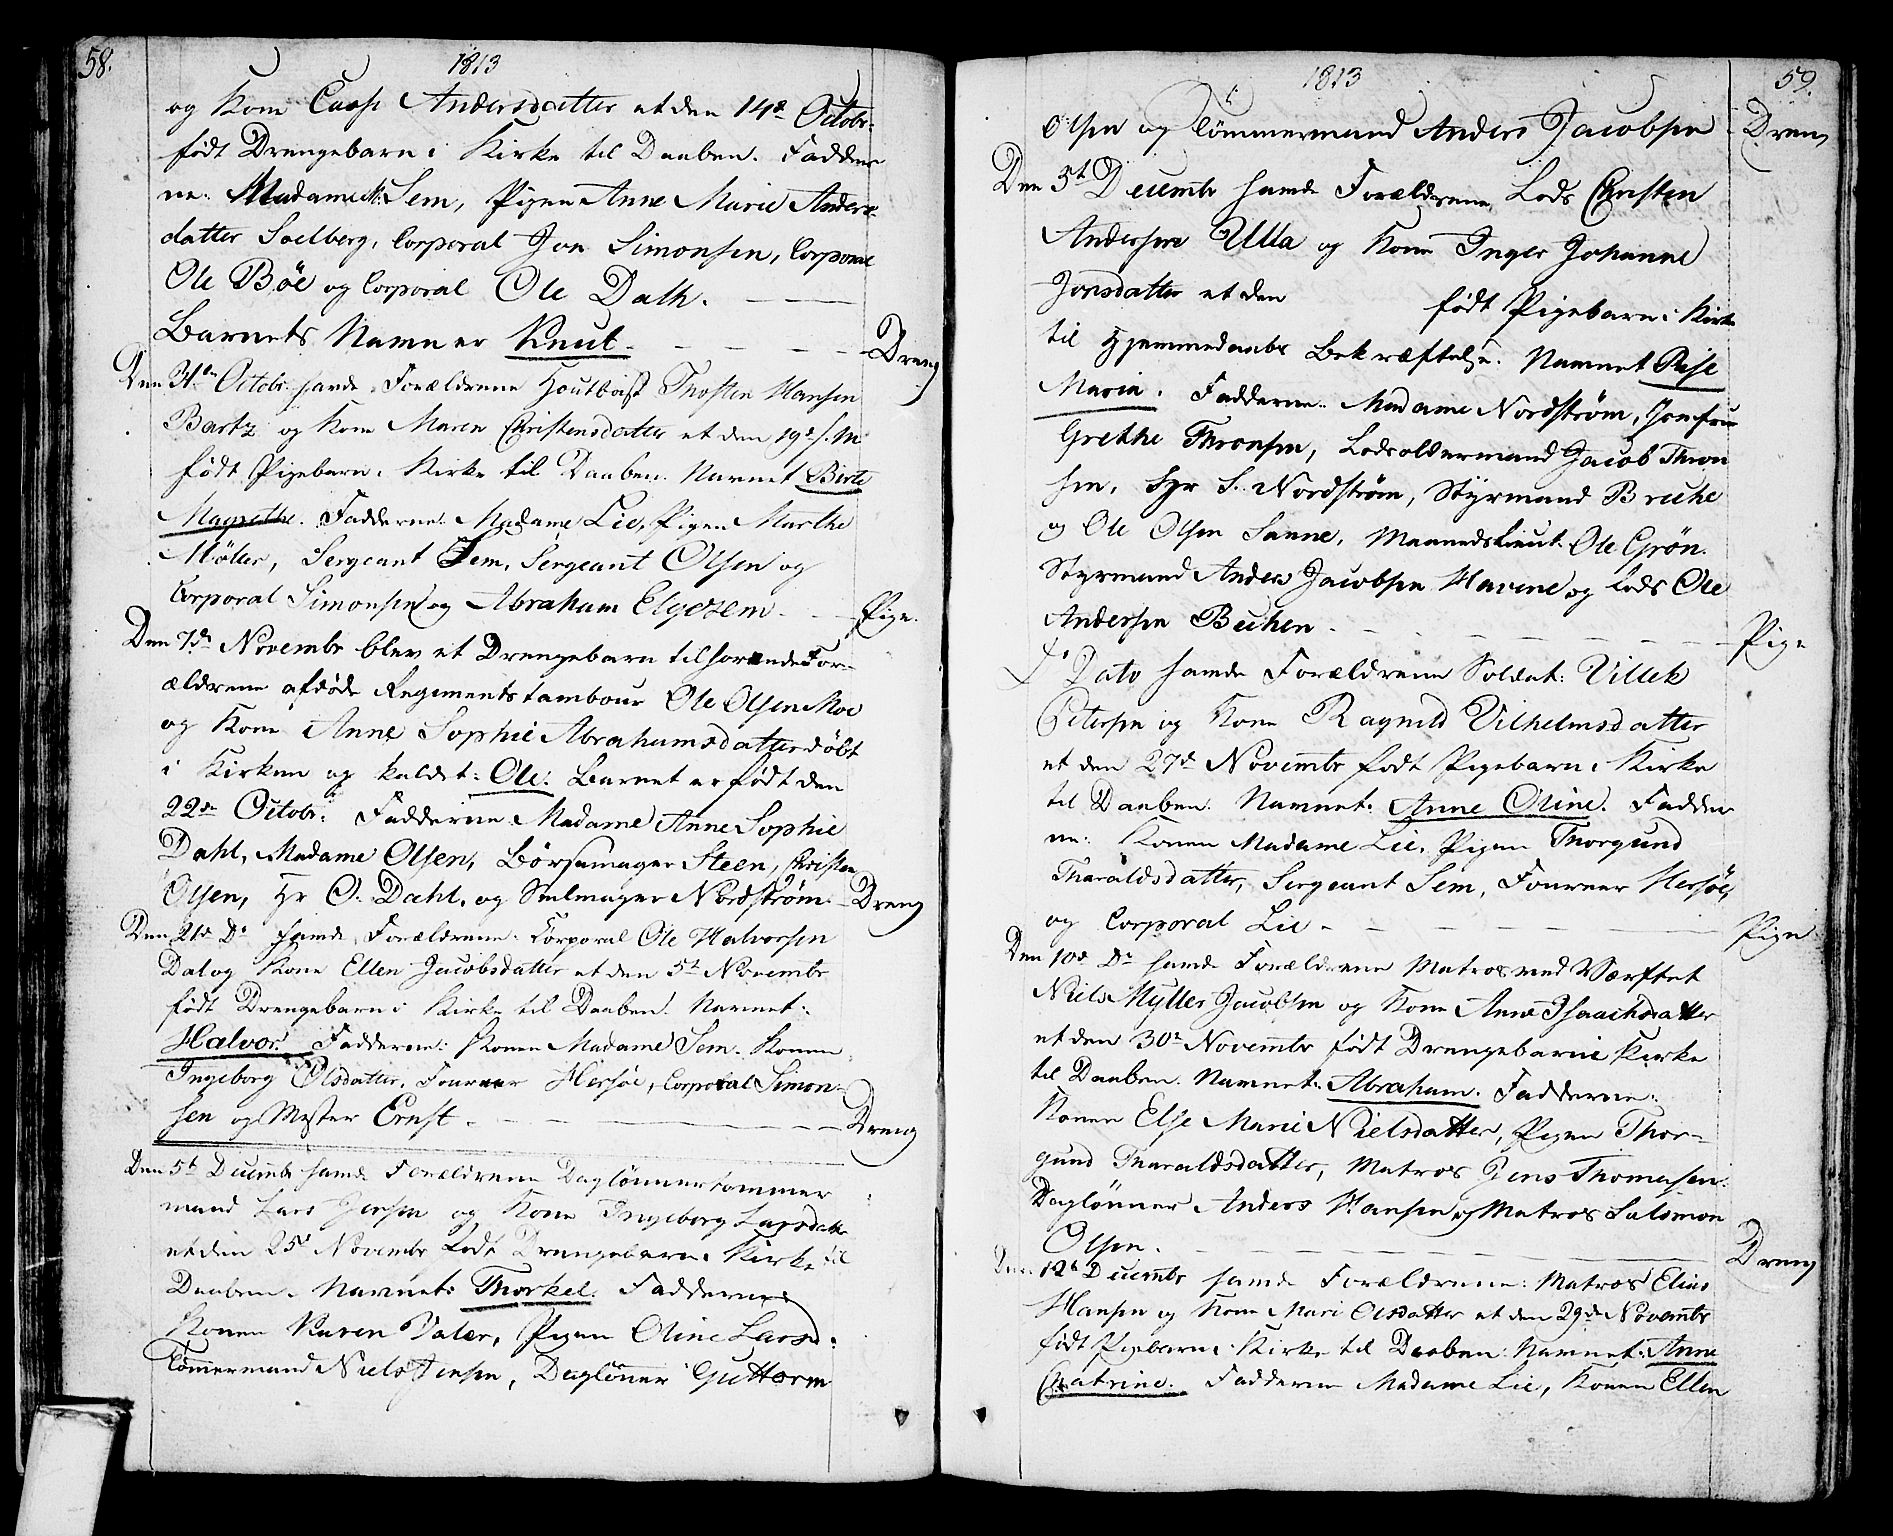 58.
1813
og Kone Andersdatter et den 14de Octobr:
født Drengebarn i Kirke til Daaben. Fadder
ne: Madame M: Sem, Pigen Anne Marie Anders-
datter Soelberg, Corporal Jon Simonsen, Corporal
Ole Böe og Corporal Ole Dalh.
Barnets Namn er Knut. Dreng
Den 31te Octobr. havde Forældrene Houtboist Thosten Hansen
Bartz og Kone Maren Christensdatter et den 19de s. M
født Pigebarn i Kirke til Daaben. Navnet Birte
Magrethe. Fadderne: Madame Lie, Pigen Marthe
Møller, Sergeant Sem, Sergeant Olsen og
Corporal Simonsen og Abraham Elgezem. Pige.
Den 7de Novembr blev et Drengebarn tilhørende For-
ældrene afdøde Regimentstambour Ole Olsen Moe
og Kone Anne Sophie Abrahamsdatter döbt
i Kirken og kaldet: Ole. Barnet er født den
22de Octobr: Fadderne Madame Anne Sophie
Dahl, Madame Olsen, Börsemager Steen, Christen
Olsen, Hr O. Dahl, og Seilmager Nordstrøm. Dreng
Den 21de Do havde Forældrene: Corporal Ole Halvorsen
Dal og Kone Ellen Jacobsdatter et den 5te Novembr
født Drengebarn i Kirke til Daaben. Navnet:
Halvor. Fadderne: Konen Madame Sem. Konen
Ingeborg Olsdatter, Fourneer Hersöe, Corporal Simon-
sen og Mester Ernst. Dreng
Den 5te Decembr havde Forældrene Daglönnertömmer
mand Lars Jensen og Kone Ingeborg Larsdattr
et den 25de Novembr født Drengebarn i Kirke til
Daaben. Navnet: Thorkel. Fadderne
Konen Karen Valer, Pigen Oline Larsd:
Tömmermand Niels Jensen, Daglönner Guttorm
1813
59.
Olsen og Tömmermand Anders Jacobsen Dreng
Den 5te Decembr havde Forældrene Lods Christen
Andersen Ulla og Kone Inger Johanne
Jonsdatter et den født Pigebarn i Kirke
til Hjemmedaabs Bekræftelse. Navnet
Maria. Fadderne. Madame Nordström, Jomfrue
Grethe Thronsen, Lodsoldermand Jacob Thron
sen, Hr S. Nordström, Styrmand
og Ole Olsen Sanne, Maanedslieut. Ole Grön.
Styrmand Anders Jacobsen Havene og Lods Ole
Andersen Buchen. Pige
Dato havde Forældrene Soldat: Villek
Petersen og Kone Ragnild Vilhelmsdatter
et den 27de Novembr født Pigebarn i Kirke
til Daaben. Navnet: Anne Oline. Fadder
ne: Konen Madame Lie, Pigen Thorgund
Tharaldsdatter, Sergeant Sem, Fourneer Hersöe,
og Corporal Lie. Pige
Den 10de Do havde Forældrene Matros ved Værftet
Niels Mÿller Jacobsen og Kone Anne Isaachsdatter
et den 30te Novembr født Drengebarn i Kirke
til Daaben. Navnet: Abraham. Fadderne:
Konen Else Marie Nielsdatter, Pigen Thor-
gund Tharaldsdatter, Matros Jens Thomesen.
Daglönner Anders Hansen og Matros Salomon
Olsen. Dreng
Den 12te Decembr havde Forældrene: Matros Elias
Hansen og Kone Mari Olsdatter et den 29de Novembr
født Pigebarn i Kirke til Daaben: Navnet: Anne
Catrine. Fadderne Madame Lie, Konen Ellen